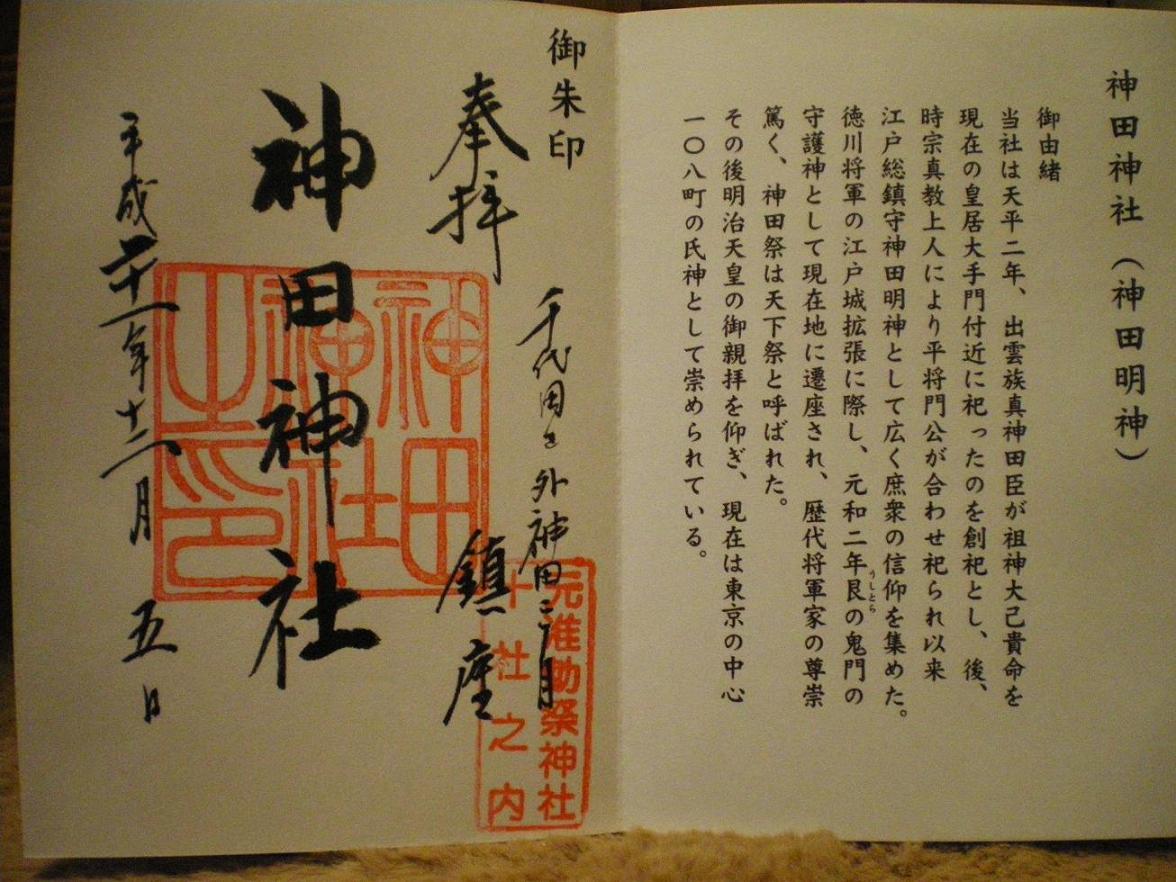 神田神社（神田明神）
御由緒
当社は天平二年、出雲族真神田臣が祖神大己貴命を
現在の皇居大手門付近に祀ったのを創祀とし、後、
時宗真教上人により平将門公が合わせ祀られ以来
江戸総鎮守神田明神として広く庶衆の信仰を集めた。
徳川将軍の江戸城拡張に際し、元和二年艮の鬼門の
うしとら
守護神として現在地に遷座され、歴代将軍家の尊崇
篤く、神田祭は天下祭と呼ばれた。
その後明治天皇の御親拝を仰ぎ、現在は東京の中心
一〇八町の氏神として崇められている。
御朱印
千代田区外神田二丁目
鎮座
奉拝
神田神社
神田
神社
之印
平成二十一年十二月五日
元准勅祭神社
十社之内